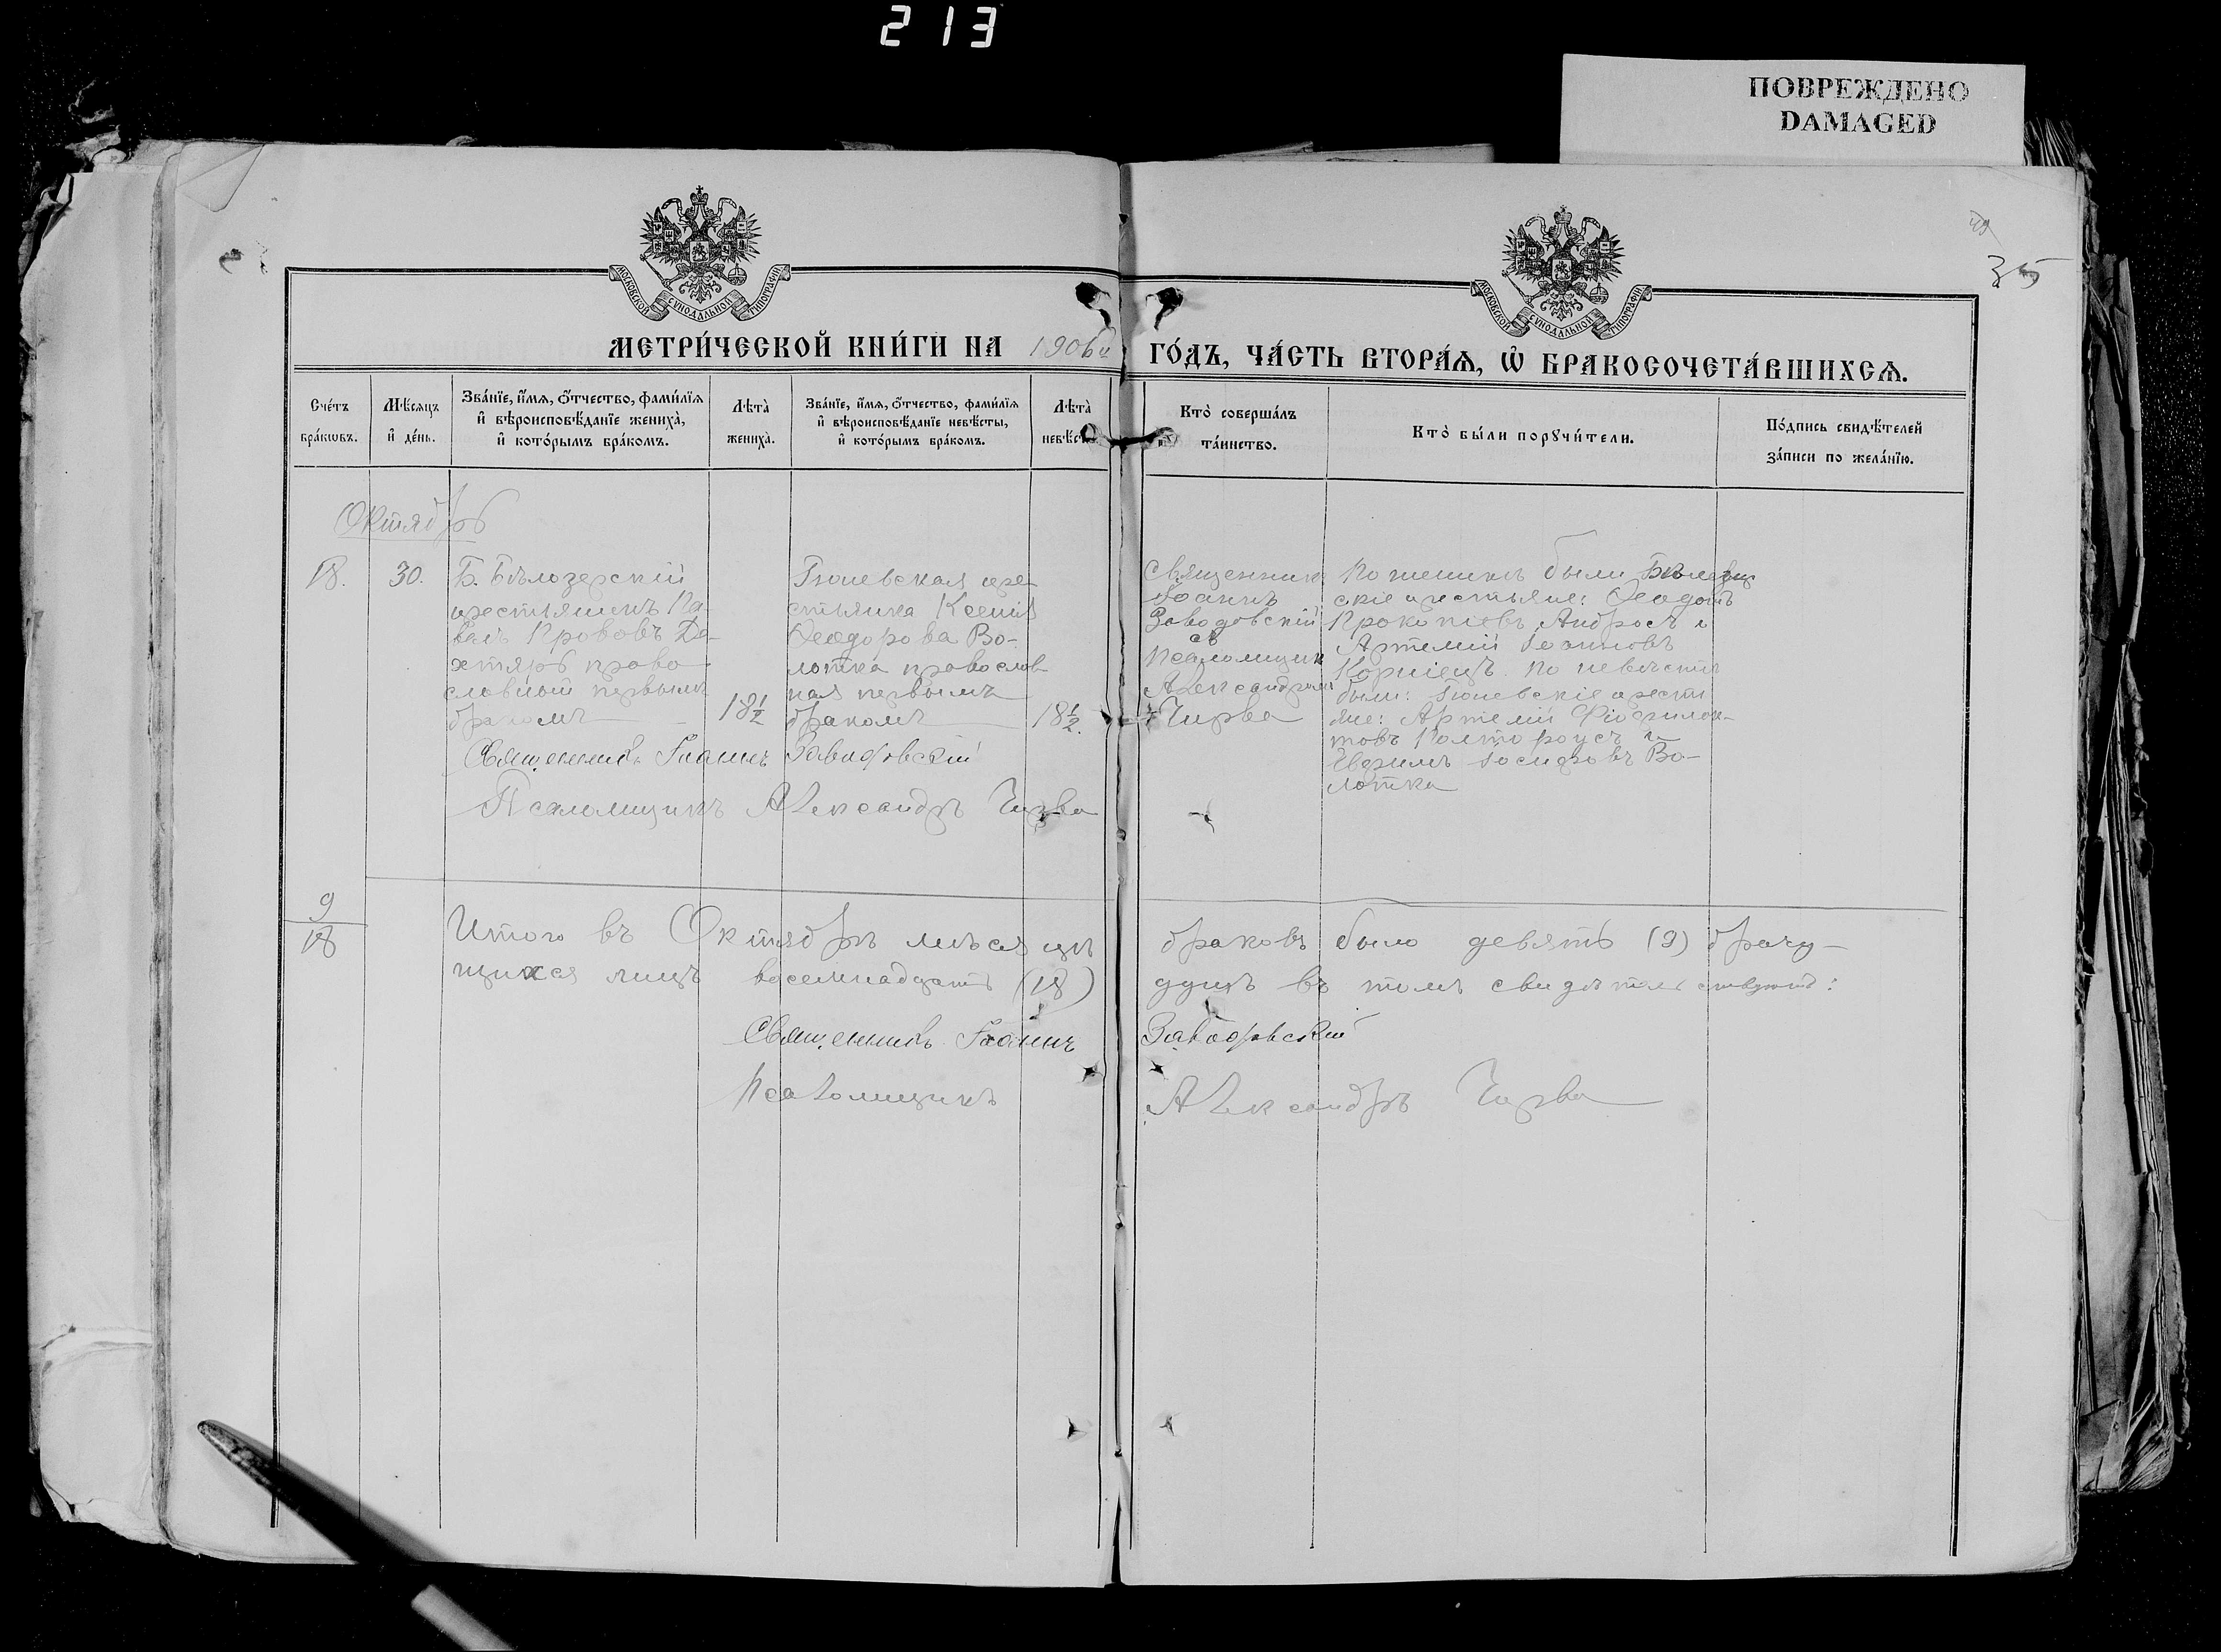 213
ПОВРЕЖДЕНО
DAMAGED
35
МОСКОВСКОЙ СѴНОДАЛЬНОЙ ТИПОГРАФІИ
МОСКОВСКОЙ СѴНОДАЛЬНОЙ ТИПОГРАФІИ
МЕТРИ́ЧЕСКОЙ КНИ́ГИ НА 1906й ГО́ДЪ, ЧА́СТЬ ВТОРА́Ѧ, Ѡ҆ БРАКОСОЧЕТА́ВШИХСѦ.
Сче́тъ
бра́кѡвъ.
Мѣ́сѧцъ
и҆ де́нь.
Зва́нїе, и҆́мѧ, ѻ҆́тчество, фами́лїѧ
и҆ вѣроисповѣ́данїе жениха̀,
и҆ кото́рымъ бра́комъ.
Лѣта̀
жениха̀.
Зва́нїе, и҆́мѧ, ѻ҆́тчество, фами́лїѧ
и҆ вѣроисповѣ́данїе невѣ́сты,
и҆ кото́рымъ бра́комъ.
Лѣта̀
невѣ́с
Кто̀ соверша́лъ
та́инство.
Кто̀ бы́ли порꙋчи́тели.
По́дпись свидѣ́телей
за́писи по жела́нїю.
Октябрь
18.
30.
Б. Бѣлозерскій
крестьянинъ Па-
велъ Прововъ Де-
хтярь право
славный первымъ
бракомъ
18½
Гюневская кре
стьянка Ксенія
Ѳеодорова Во-
лотка православ
ная первымъ
бракомъ
18½.
Священникъ
Іоаннъ
Заводовскій
съ
Псаломщик
Александромъ
Чирва
По женихѣ были Бѣлозер
скіе крестьяне: Ѳеодотъ
Прокопіевъ Андросъ и
Артемій Іоанновъ
Корніецъ. По невѣстѣ
были: Гюневскіе кресть
яне: Артемій
товъ Полтороусъ и
Евфимъ Іосифовъ Во-
лотка
Священникъ Іоаннъ Заводовскій
Псаломщикъ Александръ Чирва
9
18
Итого въ Октябрѣ мѣсяцѣ браковъ было девять (9) брачу-
щихся лицъ восемнадцать (18) душъ въ томъ свидѣтельствуютъ:
Священникъ Іоаннъ Заводовскій
Псаломщикъ Александръ Чирва